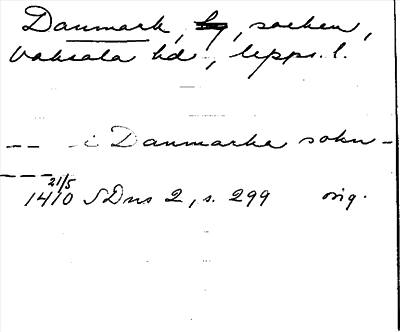 Danmark, sg, socken,
Vaksala hd, Upps. l.
-- i Danmarka sokn -
---
21/5
1410 SDns 2, s. 299 orig.